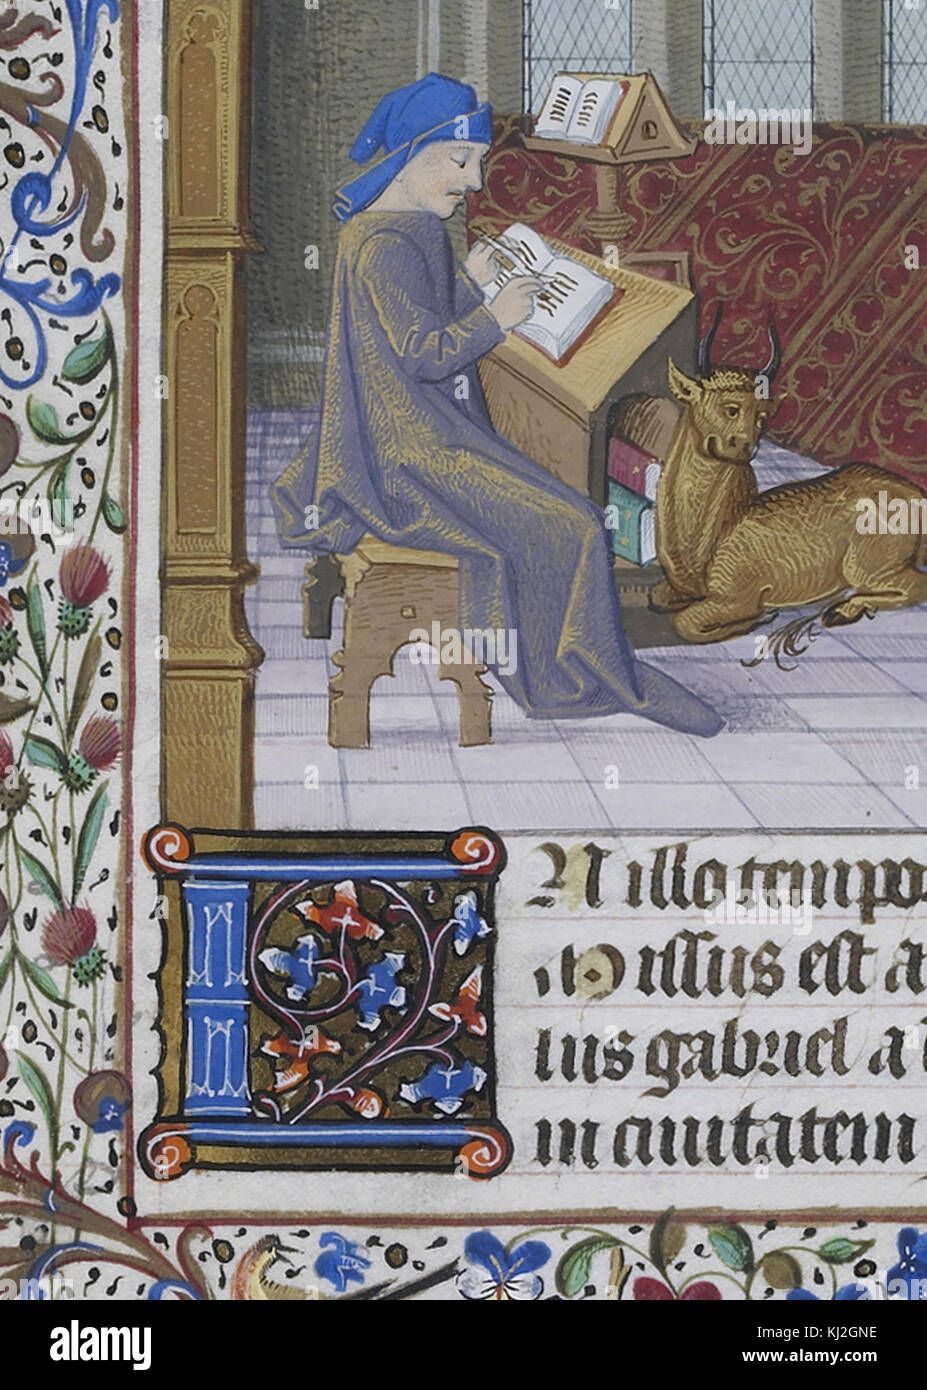 N illo tempo
re missus est a
lus gabriel a
in civitatem
alamy
KJ2GNE
www.alamy.com